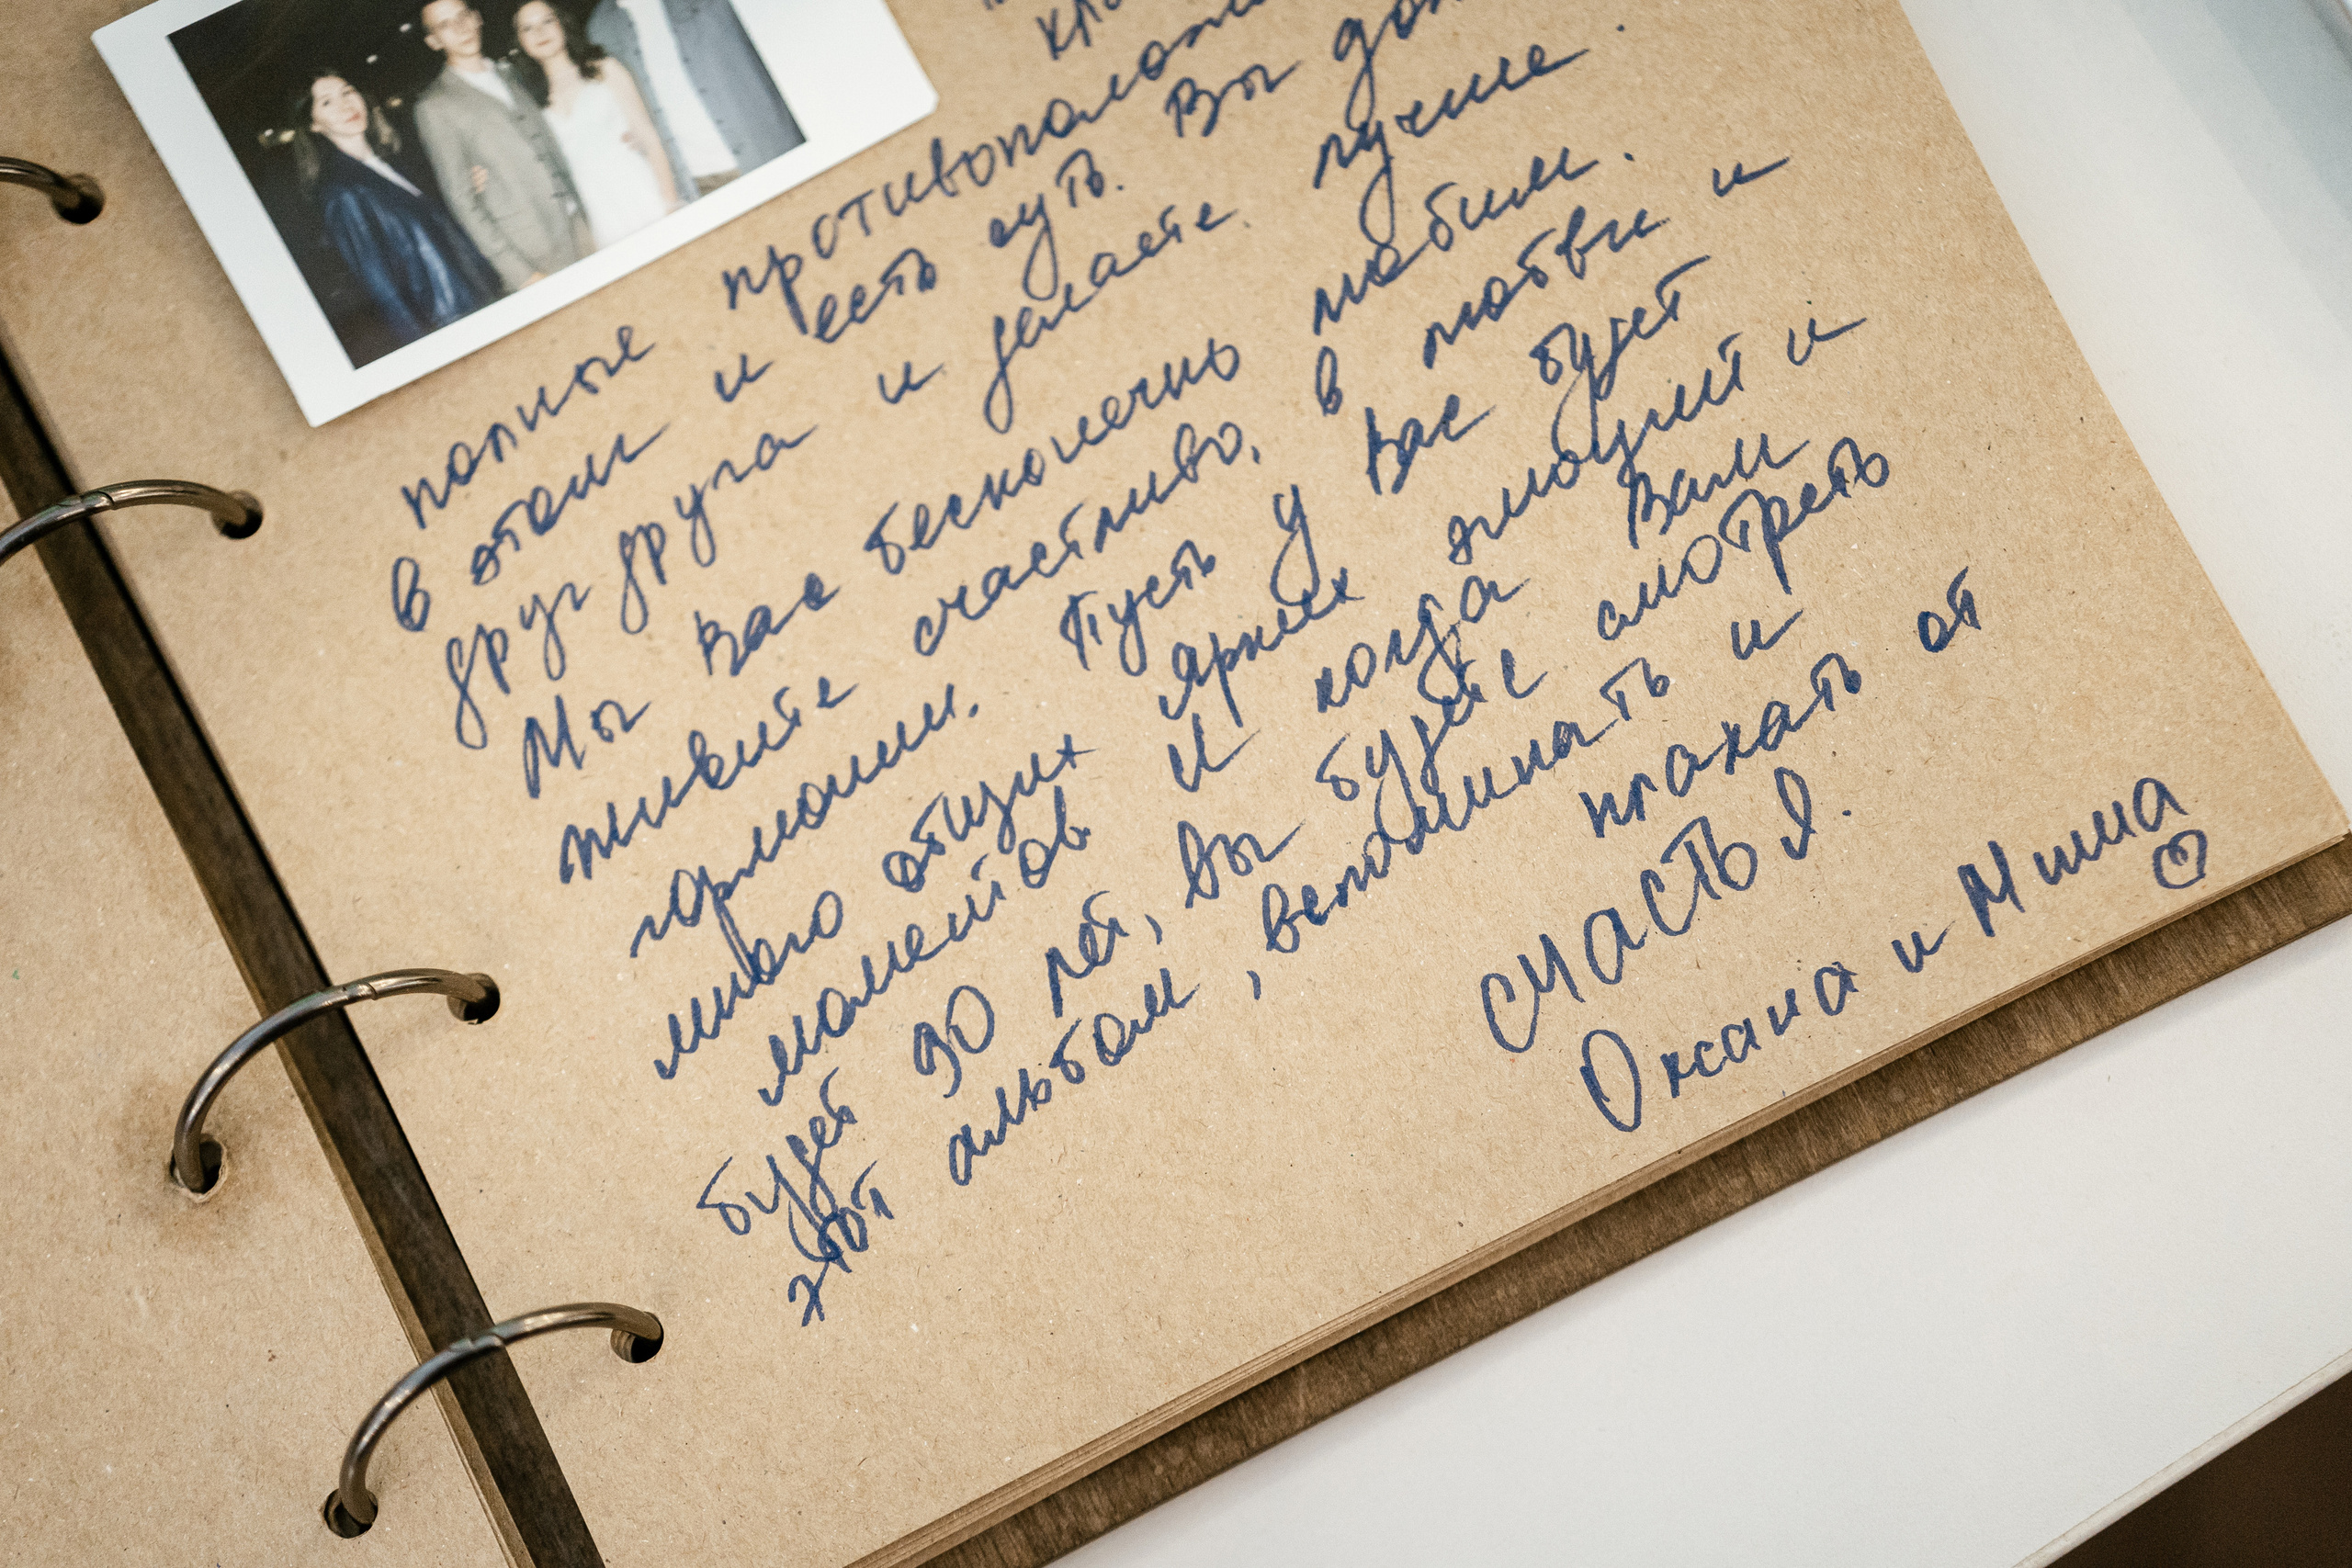 полные противополож
в этом и есть суть. Вы
друг друга и делаете лучше.
Мы Вас бесконечно любим.
живите счастливо, в любви и
гармонии. Пусть у Вас будет
много общих ярких эмоций и
моментов. И когда Вам
будет 90 лет, вы будете смотреть
этот альбом, вспоминать и
плакать от
счастья.
Оксана и Миша